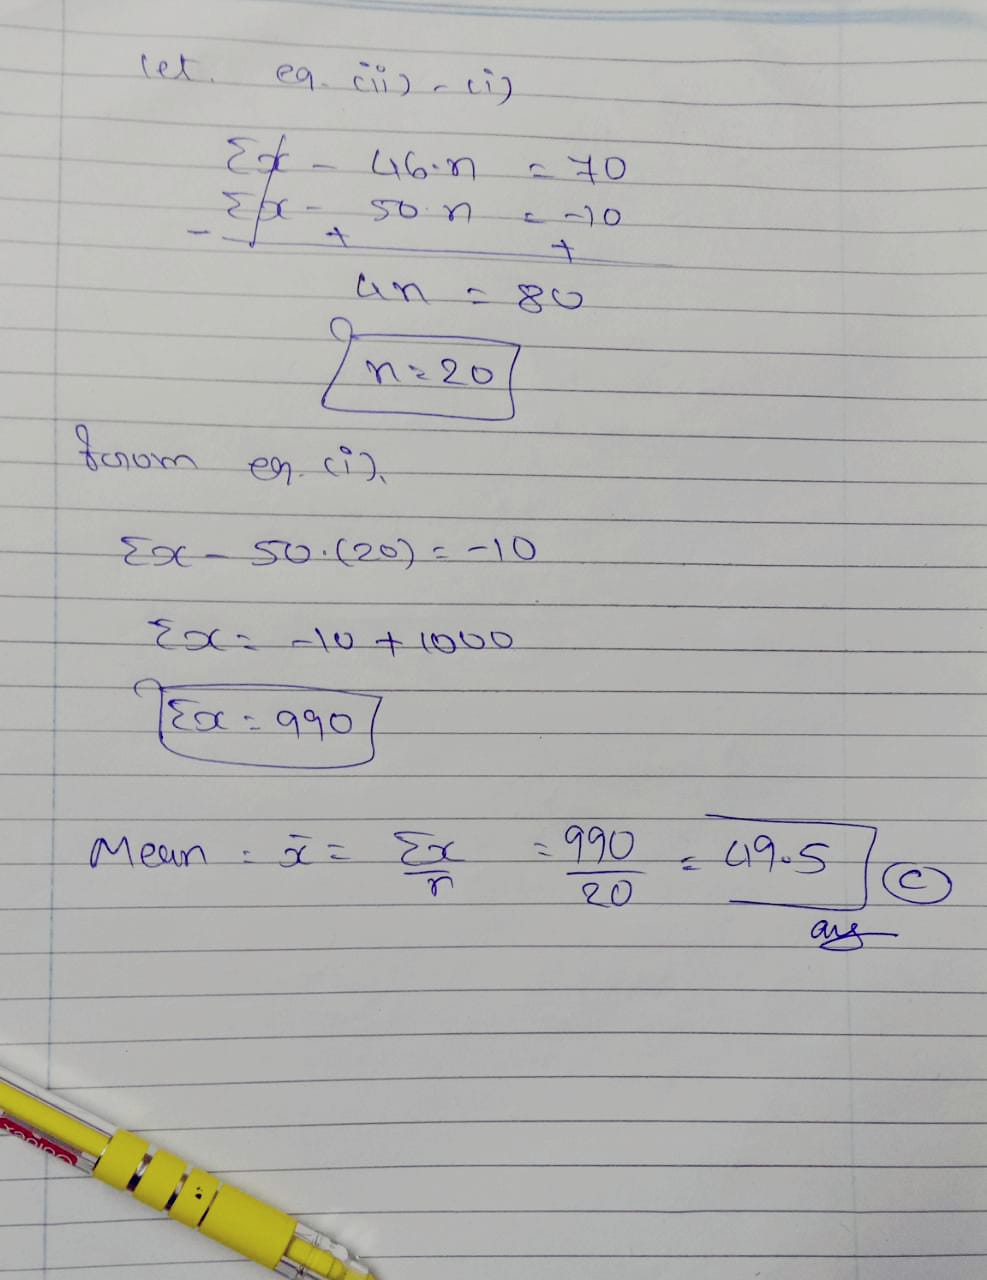 let. eq. (ii) - (i)
Σx - 46·n = 70
Σx - 50·n = -10
- + +
4n = 80
n = 20
from eq. (i).
Σx - 50·(20) = -10
Σx = -10 + 1000
Σx = 990
Mean = x̄ = Σx/n = 990/20 = 49.5 (C)
ans